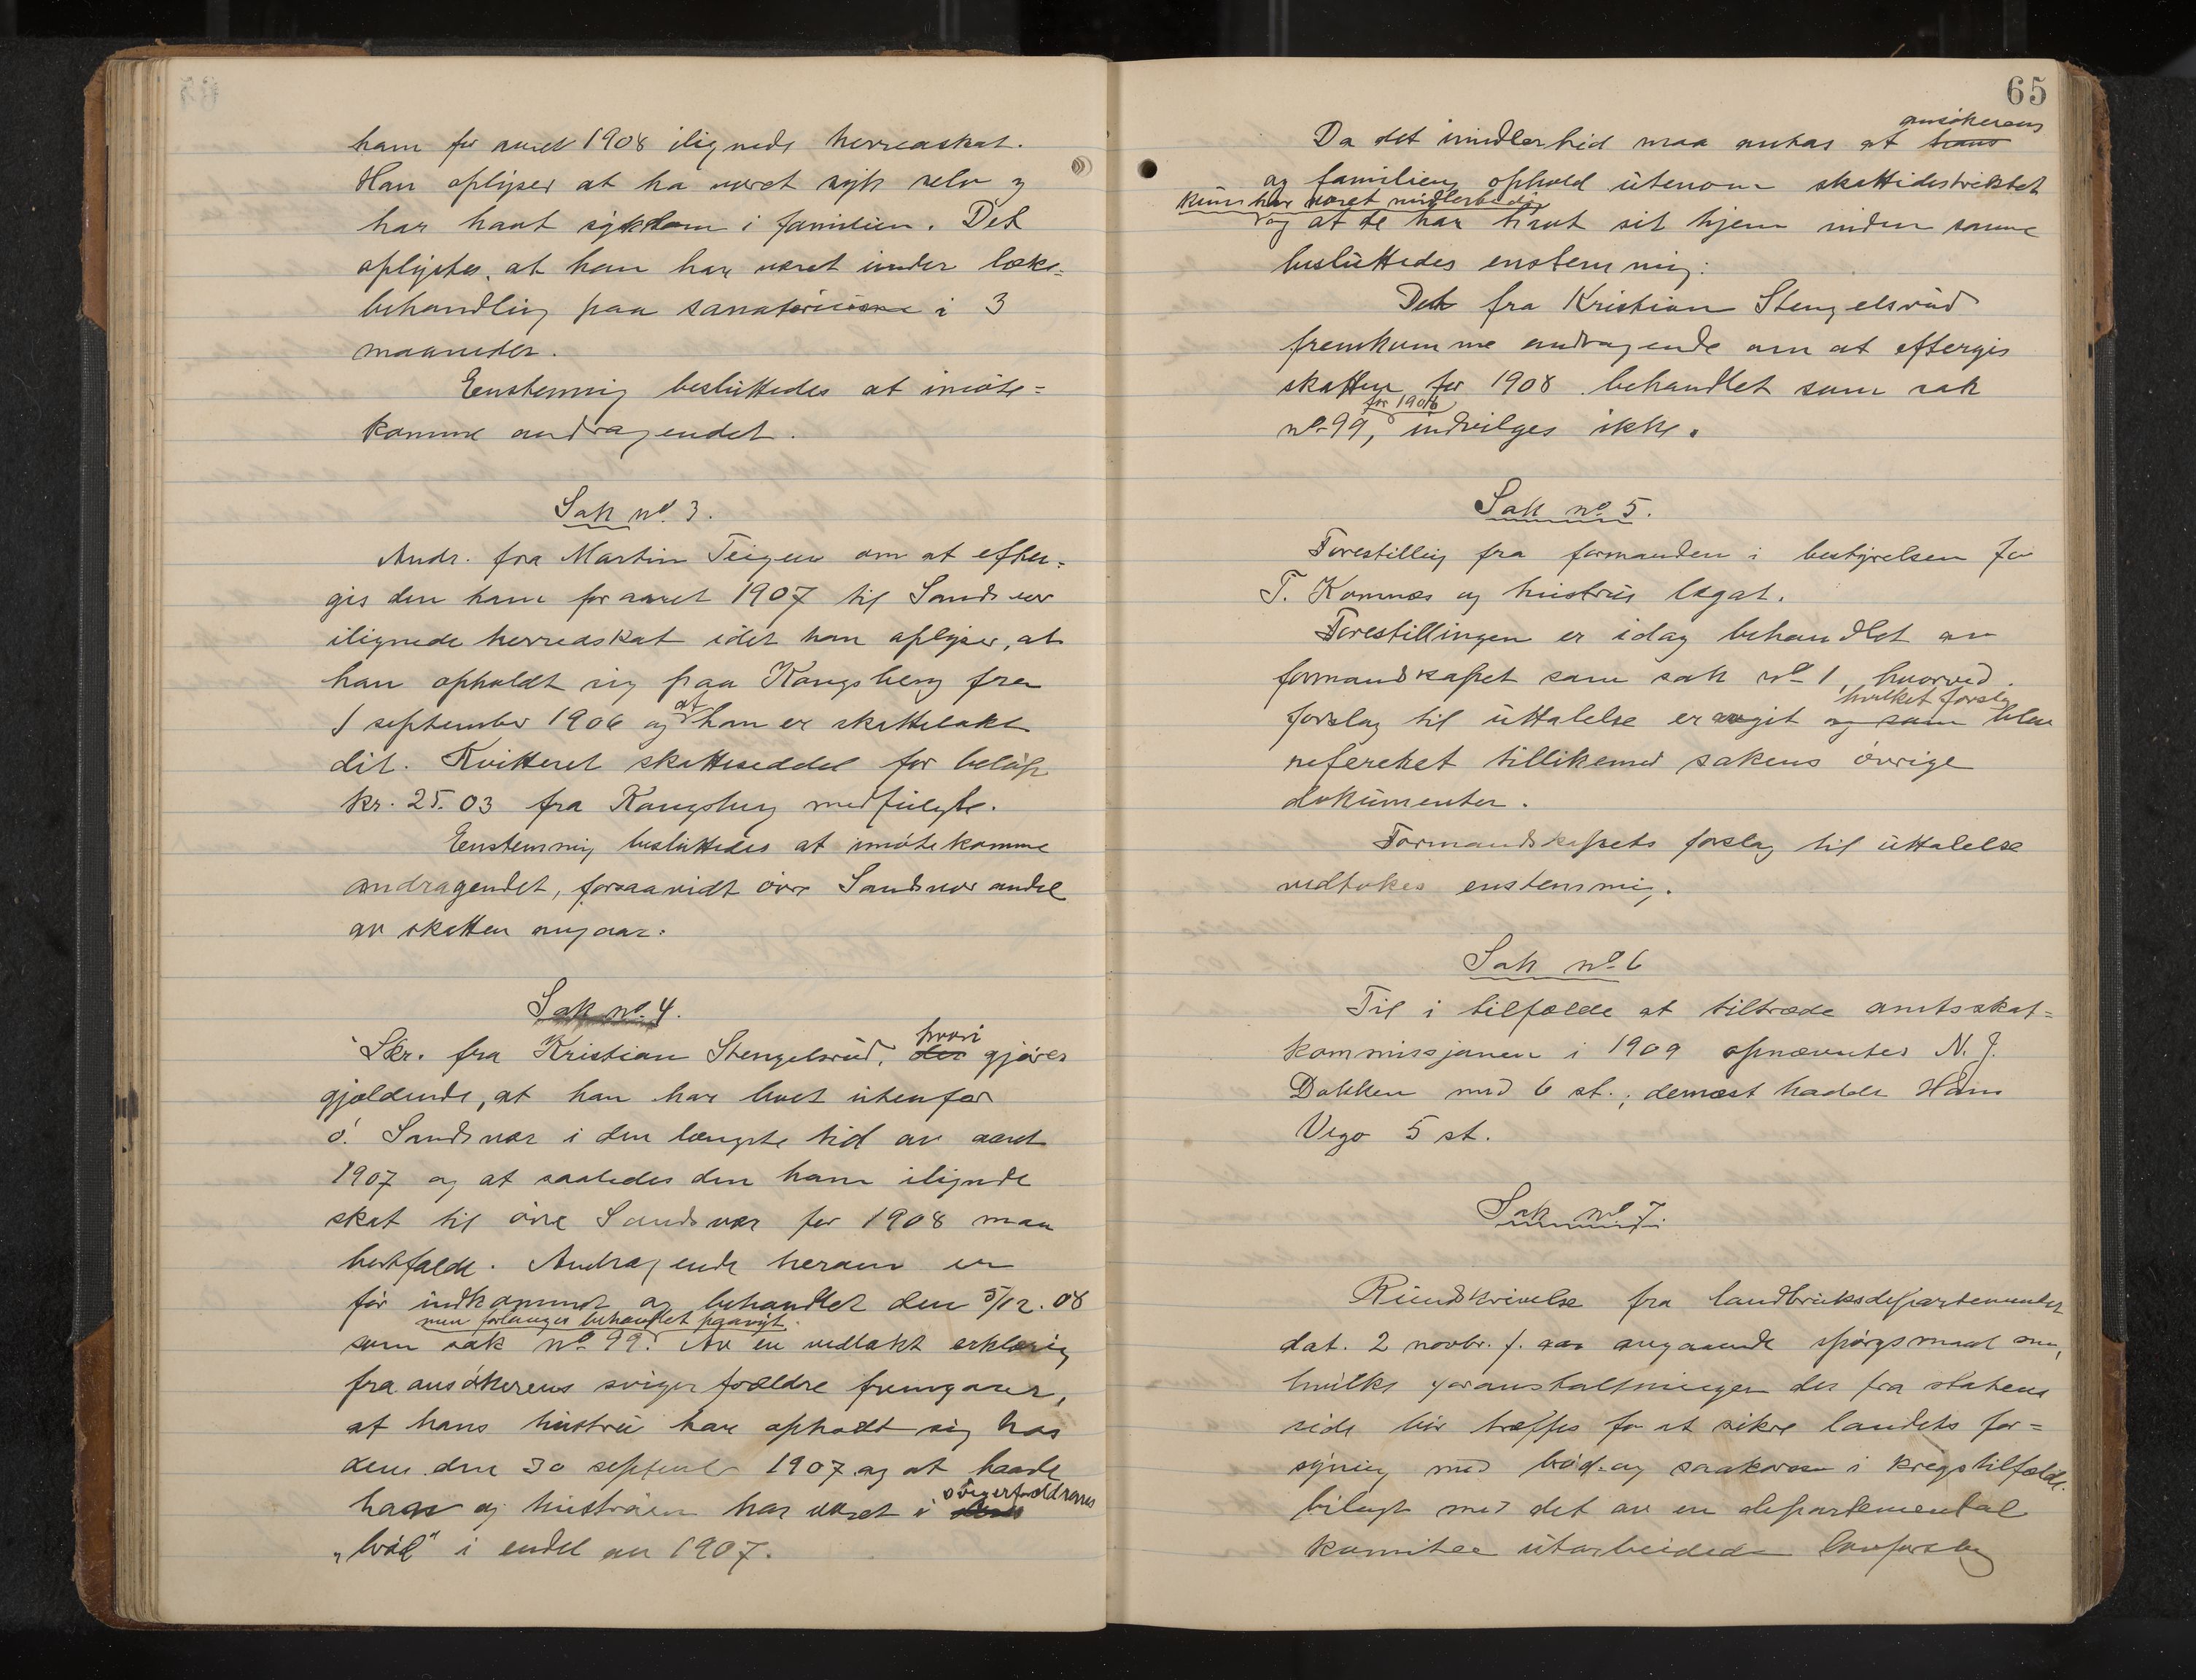 ham for aaret 1908 ilignede herredskat.
Han oplyser at ha været syk selv og
har havt sykdom i familien. Det
oplystes, at han har været under læke=
behandling paa sanatorium i 3
maaneder.
Enstemmig besluttedes at imøte=
komme andragendet.
Sak no. 3.
Andr. fra Martin Teigen om at efter=
gis den ham for aaret 1907 til Sandsvær
ilignede herredskat idet han oplyser, at
han opholdt sig paa Kongsberg fra
1 september 1906 og at han er skattelakt
dit. Kvitteret skatteseddel for beløp
kr. 25.03 fra Kongsberg medfulgte.
Enstemmig besluttedes at imøtekomme
andragendet, forsaavidt øvre Sandsvær andel
av skatten angaar.
Sak no. 4.
Skr. fra Kristian Stengelsrud, der hvori gjøres
gjældende, at han har boet utenfor
ø. Sandsvær i den længste tid av aaret
1907 og at saaledes den ham ilignede
skat til øvre Sandsvær for 1908 maa
bortfalde. Andragende herom er
før indkommet og behandlet den 5/12.08
som sak no 99. men forlanges behandlet paanyt. Av en vedlakt erklæring
fra ansøkerens svigerforældre fremgaar,
at hans hustru har opholdt sig hos
dem den 30 septembr 1907 og at baade
han og hustruen har været i deres svigerforældrenes
„brød" i endel av 1907.
65
Da det imidlertid maa antas at hans ansøkerens
og familiens ophold utenom skattedistriktet
kun har været midlertidig og at de har havt sit hjem inden samme
besluttedes enstemmig:
Det fra Kristian Stengelsrud
fremkomne andragende om at eftergis
skatten for 1908 behandlet som sak
no 99, for 1908 indvilges ikke.
Sak no 5.
Forestilling fra formanden i bestyrelsen for
T. Komnæs og hustrus legat.
Forestillingen er idag behandlet av
formandskapet som sak no 1, hvorved
forslag til uttalelse er avgit og som hvilket forslag blev
refereret tillikemed sakens øvrige
dokumenter.
Formandskapets forslag til uttalelse
vedtokes enstemmig.
Sak no 6
Til i tilfælde at tiltræde amtsskat=
kommissjonen i 1909 opnævntes N. J.
Dokken med 6 st.; dernæst hadde Hans
Vego 5 st.
Sak no 7.
Rundskrivelse fra landbruksdepartementet
dat. 2 novbr. f. aar angaaende spørgsmaal om,
hvilke foranstaltninger der fra statens
side bør træffes for at sikre landets for=
syning med brød- og saakorn i krigstilfælde.
bilagt med det av en departemental
komitee utarbeidede lovforslag